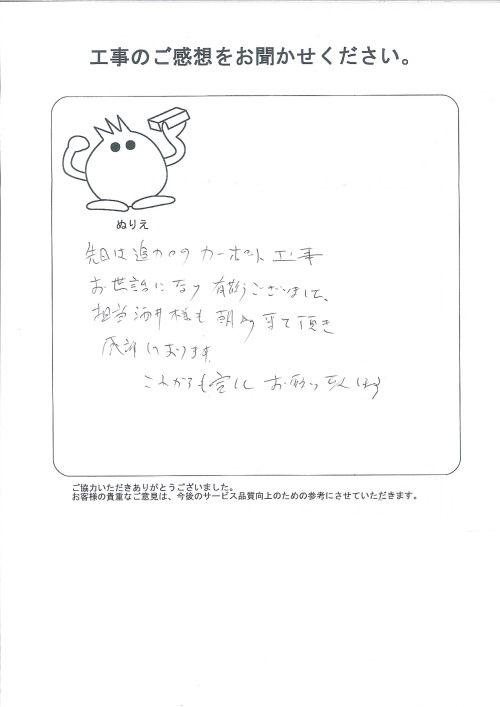 工事のご感想をお聞かせください。
ぬりえ
先日は追加のカーポート工事
お世話になり有難うございまして、
担当酒井様も朝夕来て頂き
感謝しております。
これからも宜しくお願い致します
ご協力いただきありがとうございました。
お客様の貴重なご意見は、今後のサービス品質向上のための参考にさせていただきます。